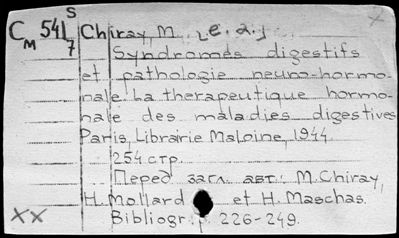 S
C M 54L 7 Chiray, M. [e. a.]
Syndromes digestifs
et pathologie neuro-hormo-
nale. La therapeutique hormo-
nale des maladies digestives
Paris, Librairie Maloine, 1944.
254 стр.
Перед загл. авт.: M. Chiray,
H. Mollard et H. Maschas.
Bibliogr.: p. 226-249.
XX